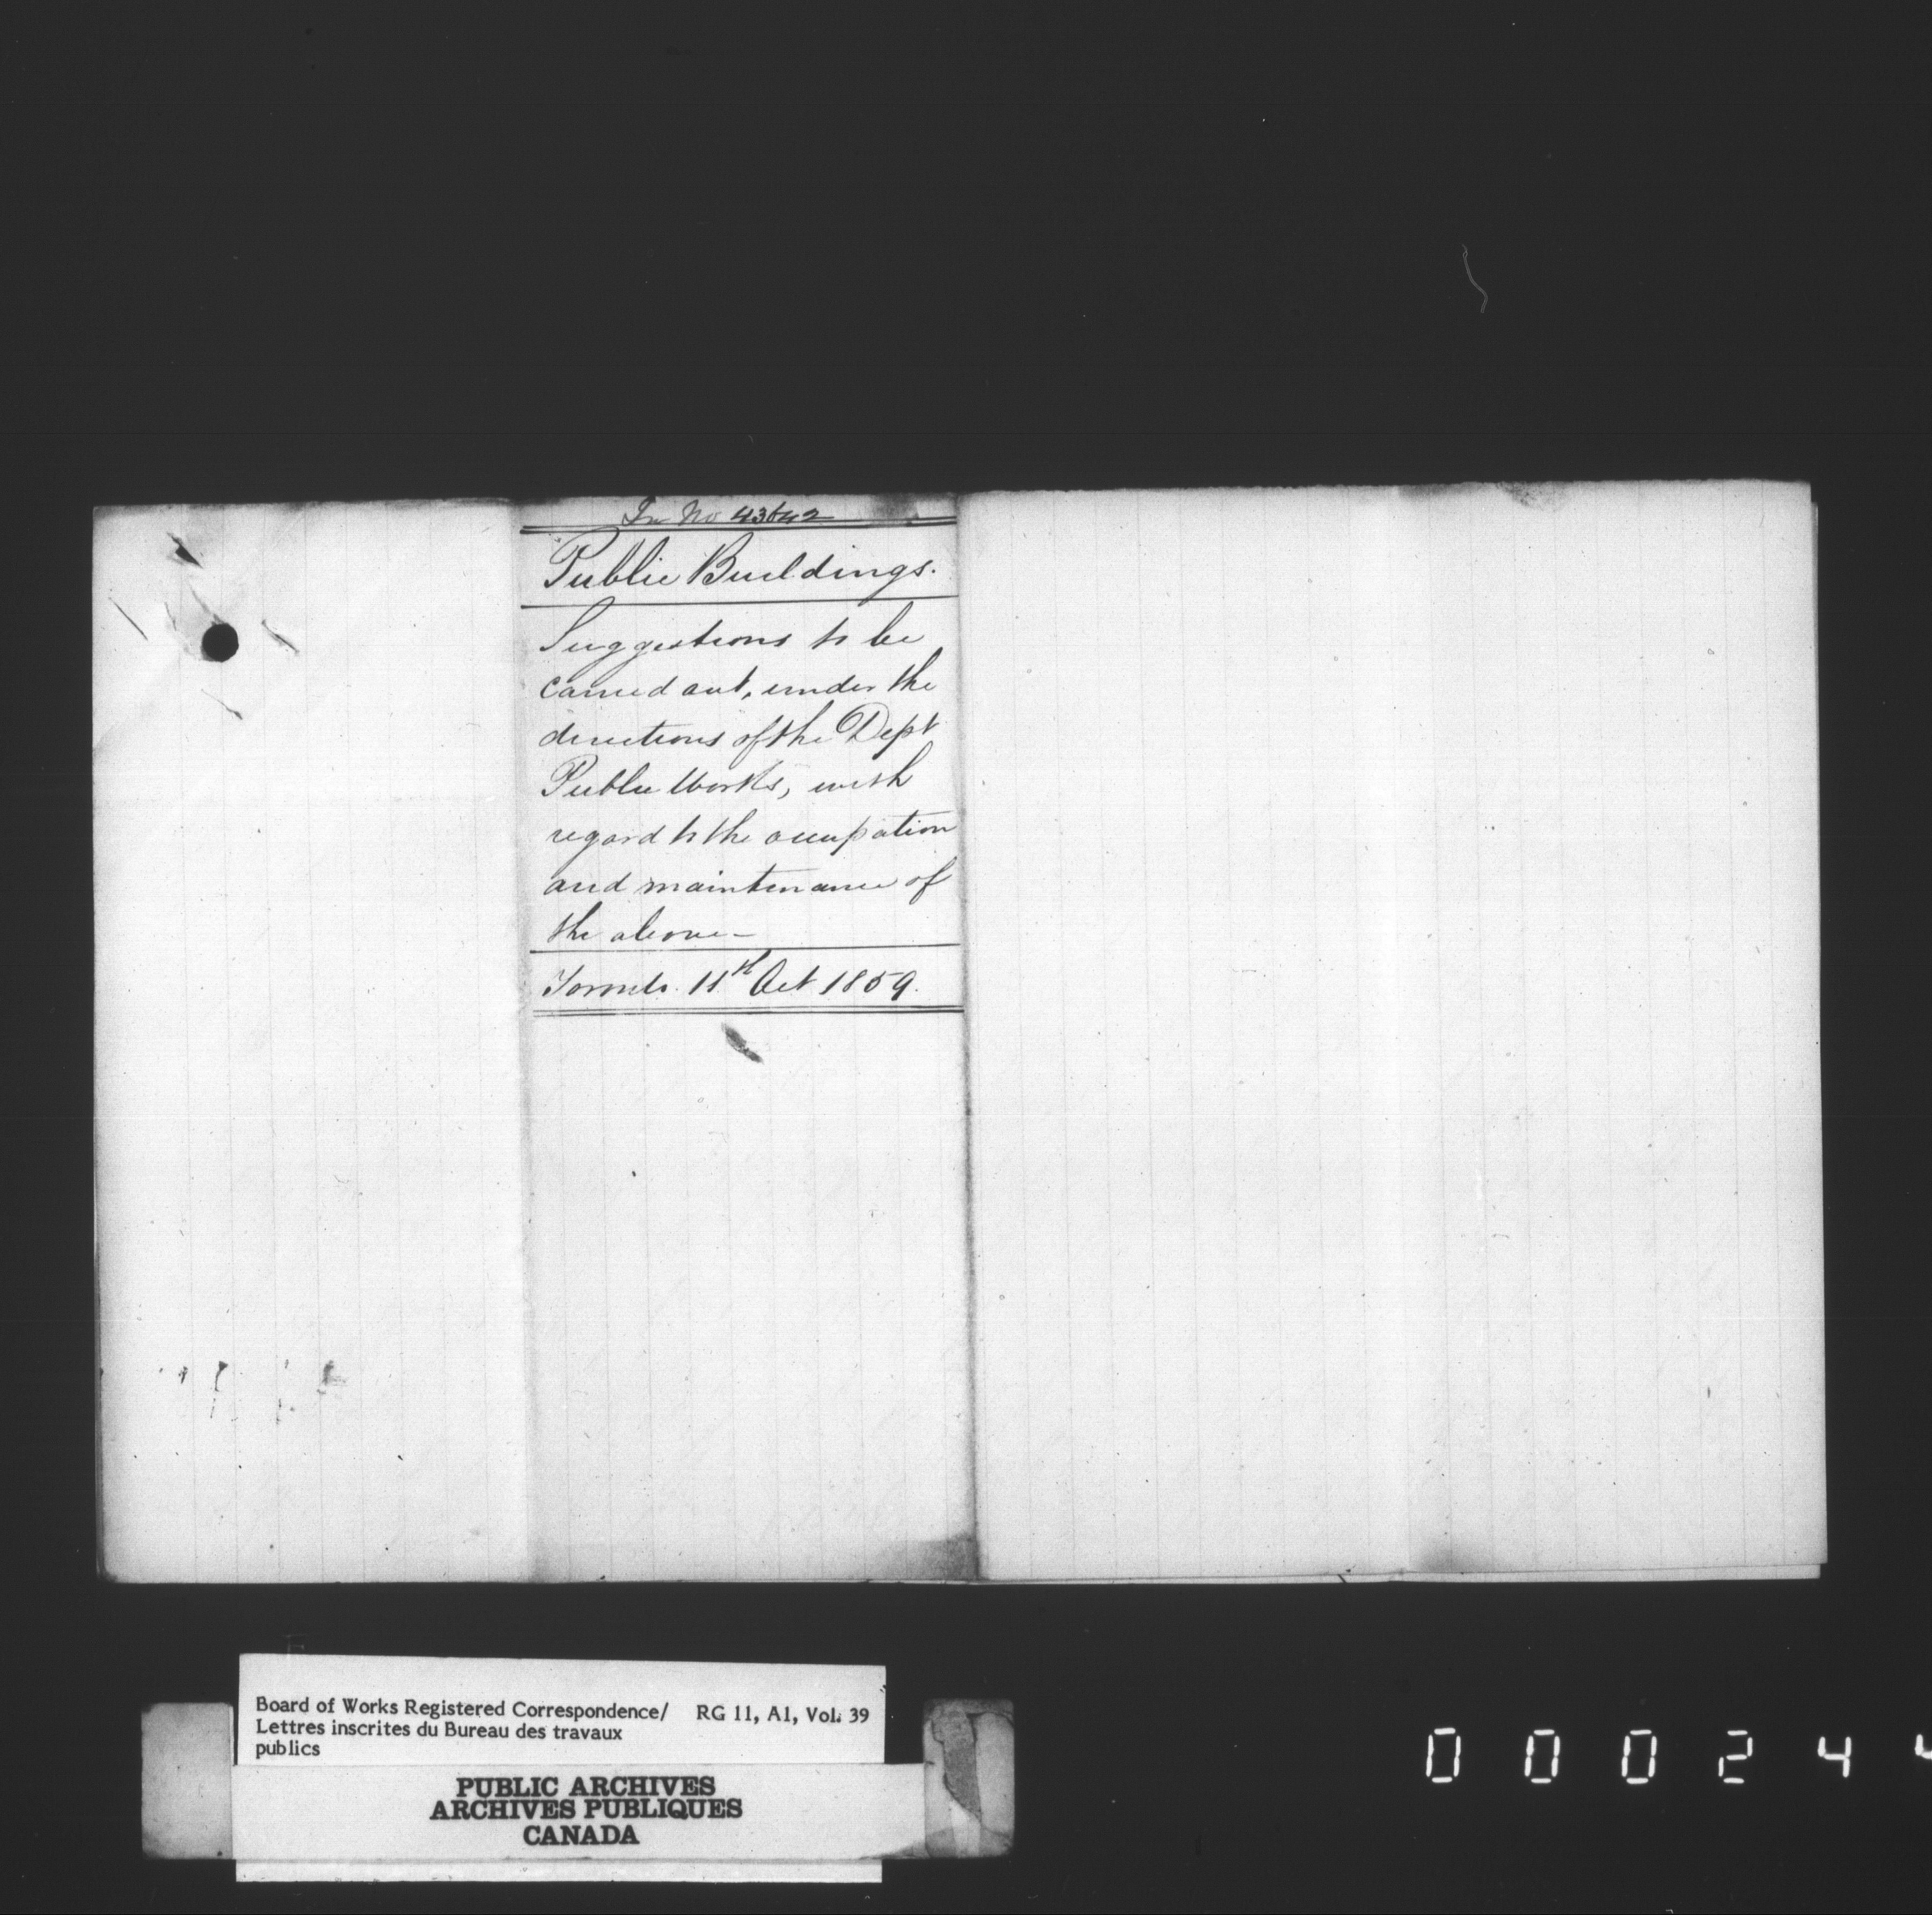 In No 43642
Public Buildings.
Suggestions to be
carried out, under the
directions of the Dept
Public Works, with
regard to the occupation
and maintenance of
the above—
Toronto. 11th Oct 1859.
Board of Works Registered Correspondence/ RG 11, A1, Vol. 39
Lettres inscrites du Bureau des travaux
publics
PUBLIC ARCHIVES
ARCHIVES PUBLIQUES
CANADA
0 0 0 2 4 4